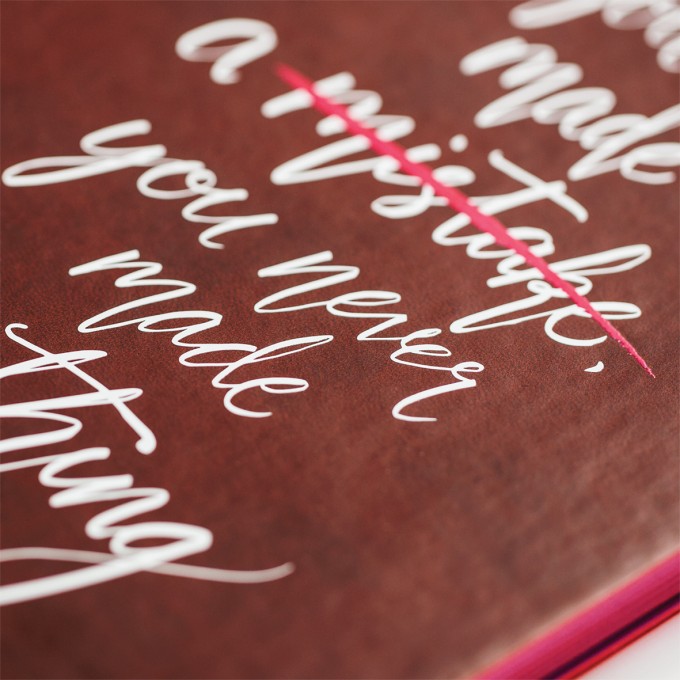 made
a mistake,
you never
made
thing